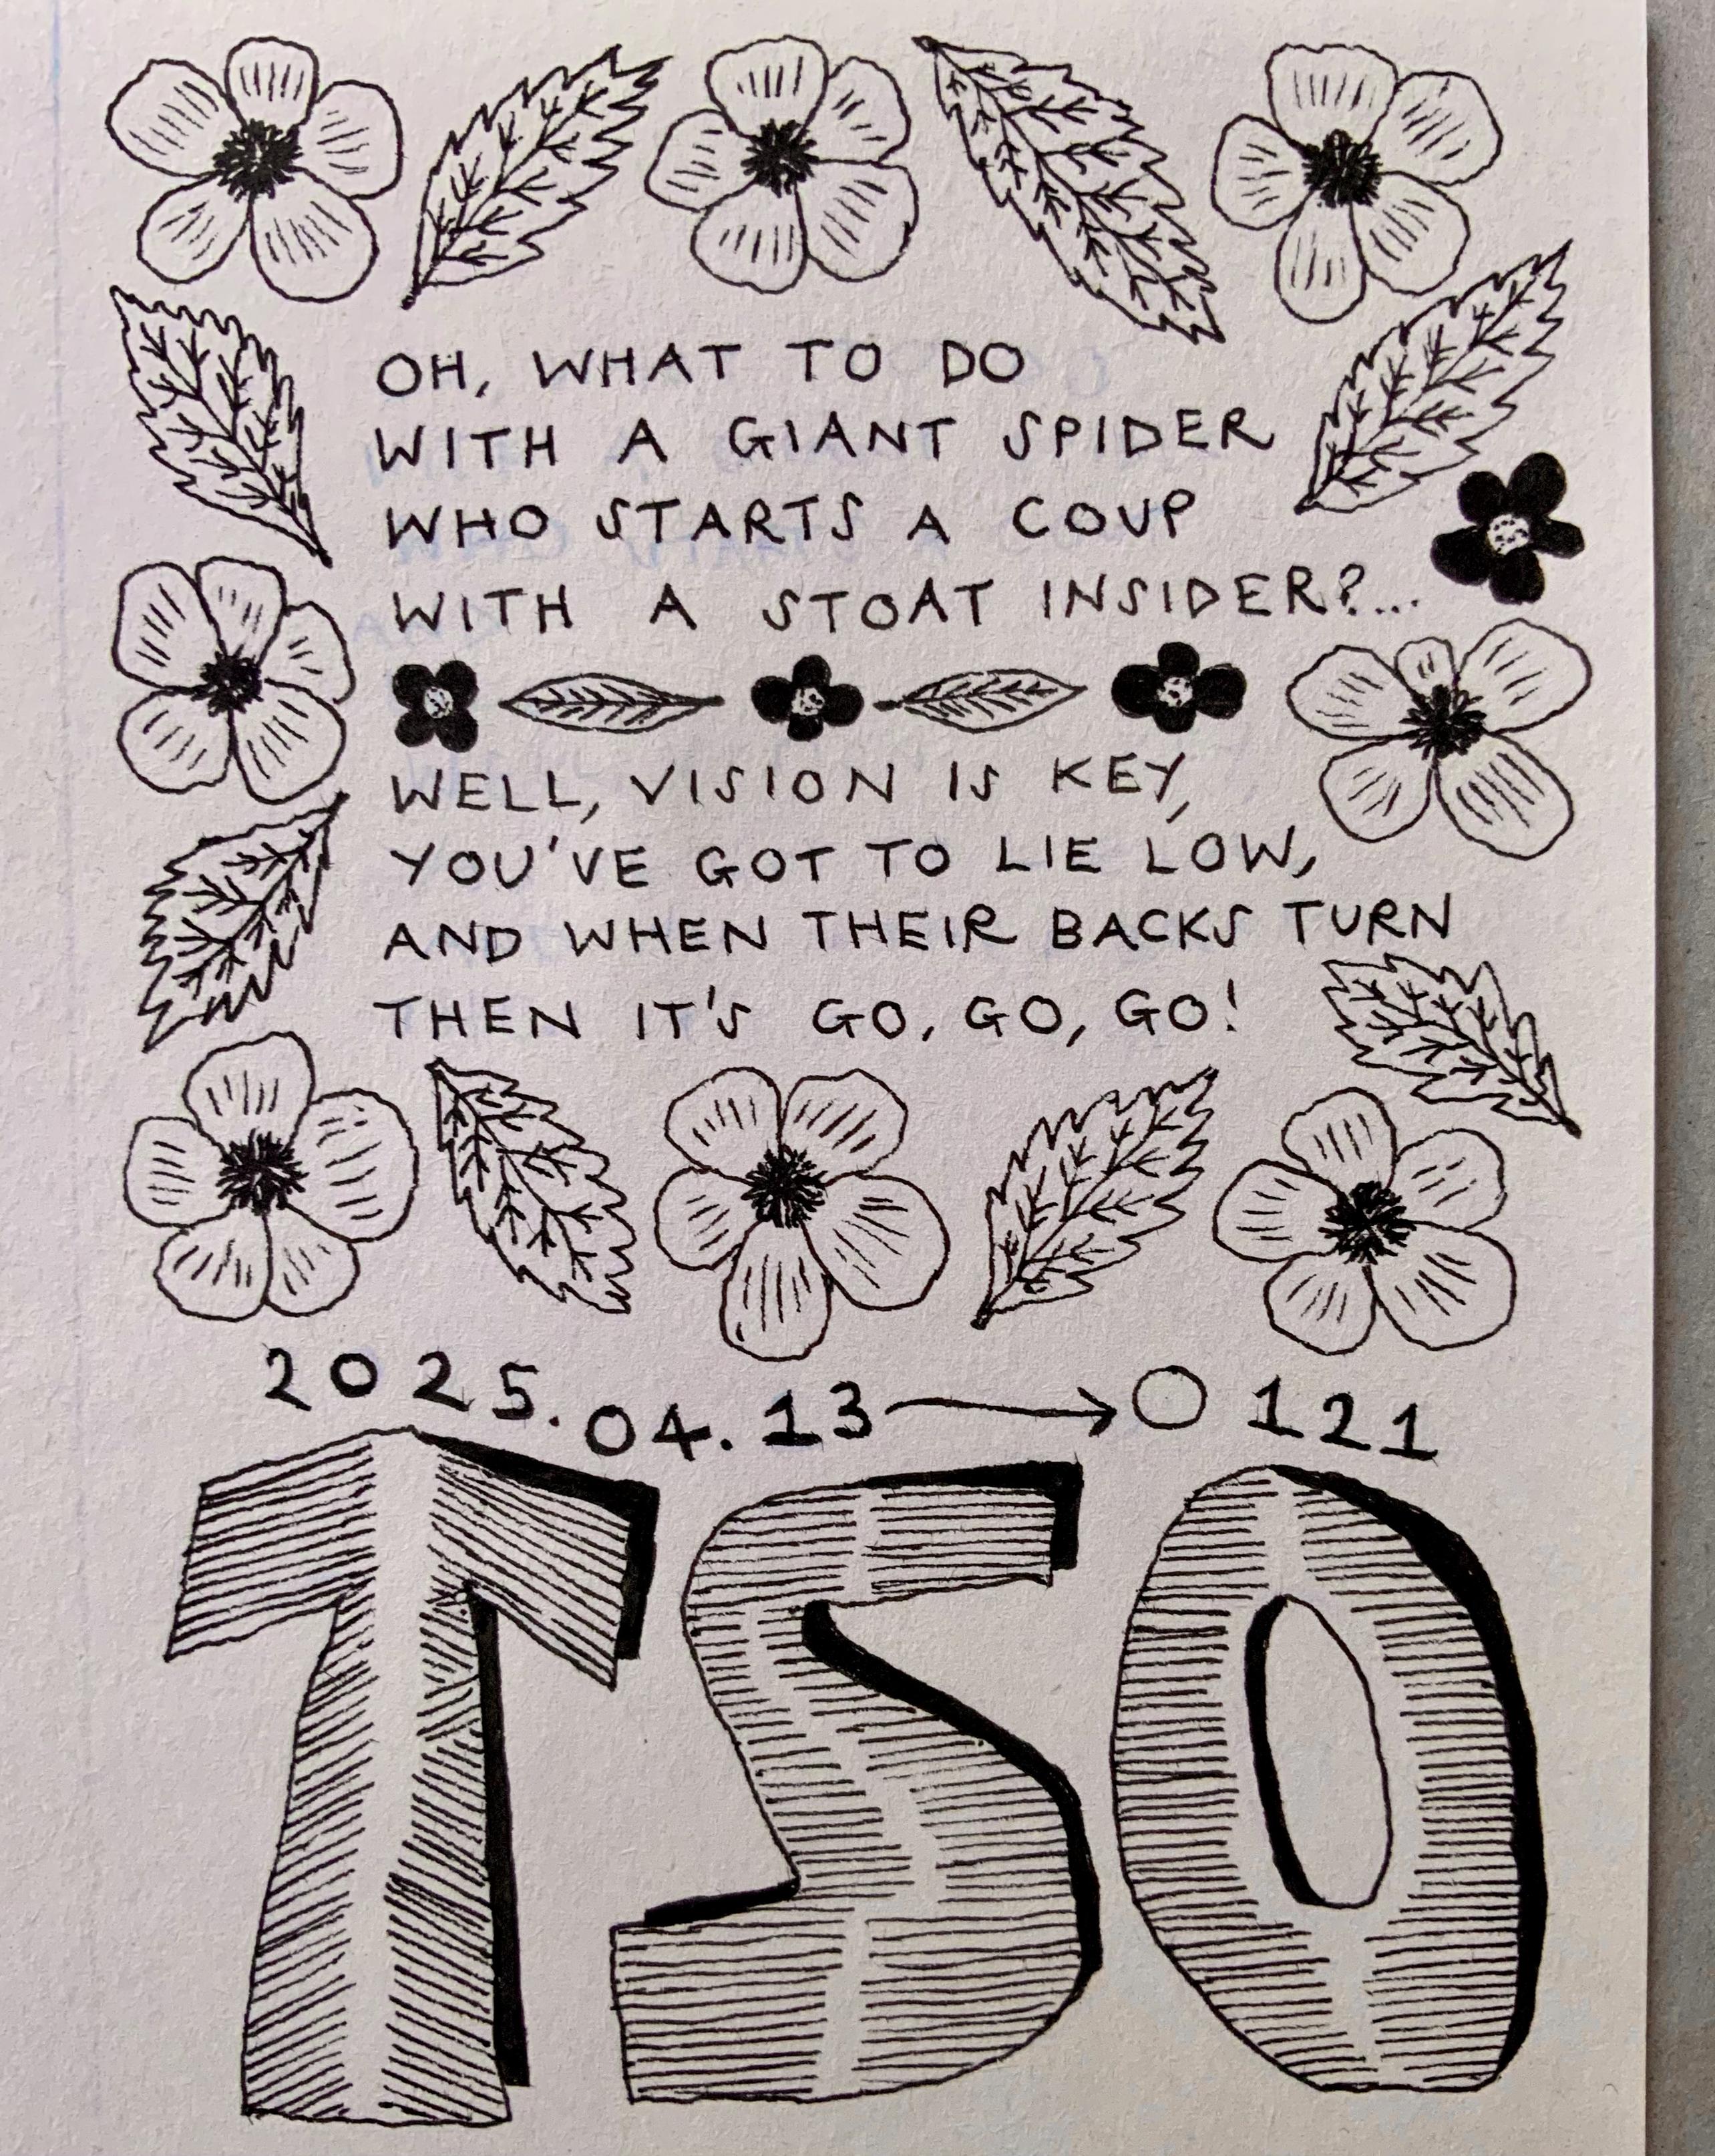 OH, WHAT TO DO
WITH A GIANT SPIDER
WHO STARTS A COUP
WITH A STOAT INSIDER?...
WELL, VISION IS KEY,
YOU'VE GOT TO LIE LOW,
AND WHEN THEIR BACKS TURN
THEN IT'S GO, GO, GO!
2025.04.13→○121
TSO